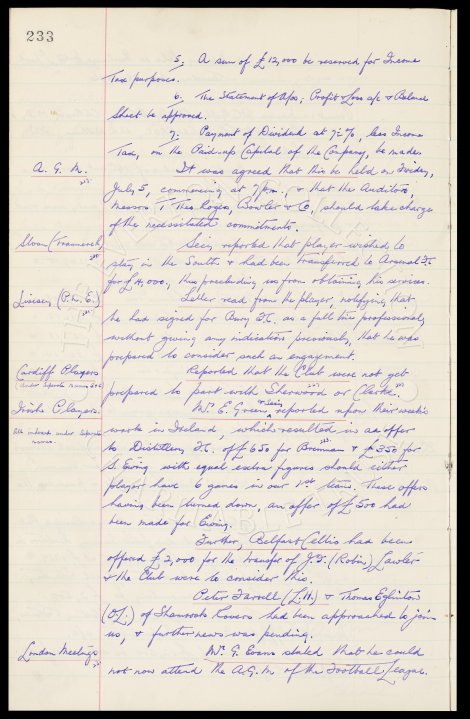 233
5. A sum of £12,000 be reserved for Income
Tax purposes.
6. The Statement of A/cs, Profit & Loss a/c & Balance
Sheet be approved.
7. Payment of Dividend at 7½%, less Income
Tax, on the Paid-up Capital of the Company, be made.
A. G. M. It was agreed that this be held on Friday,
July 5, commencing at 7 p.m., & that the Auditors,
Messrs. T. Theo. Rogers, Bowler & Co, should take charge
of the necessitated commitments.
Sloan (Tranmere) Secy reported that player wished to
stay in the South & had been transferred to Arsenal F.C.
for £4,000, thus precluding us from obtaining his services.
(P.N.E.) Letter read from the player, notifying that
he had signed for Bury F.C. as a full time professional,
without giving any indication previously, that he was
prepared to consider such an engagement.
Cardiff Players Reported that the Club were not yet
prepared to part with Sherwood or Clarke.
Irish Players. Mr. E. Green & Secy reported upon their week's
All indexed under separate
names.
work in Ireland, which resulted in an offer
to Distillery F.C. of £650 for Brennan & £350 for
S. Ewing with equal extra figures should either
player have 6 games in our 1st team. These offers
having been turned down, an offer of £500 had
been made for Ewing.
Further, Belfast Celtic had been
offered £2,000 for the transfer of J.F. (Robin) Lawler
& the Club were to consider this.
Peter Farrell (L.H.) & Thomas Eglinton
(O.L.) of Shamrock Rovers had been approached to join
us, & further news was pending.
London Meetings Mr. G. Evans stated that he could
not now attend the A.G.M. of the Football League.